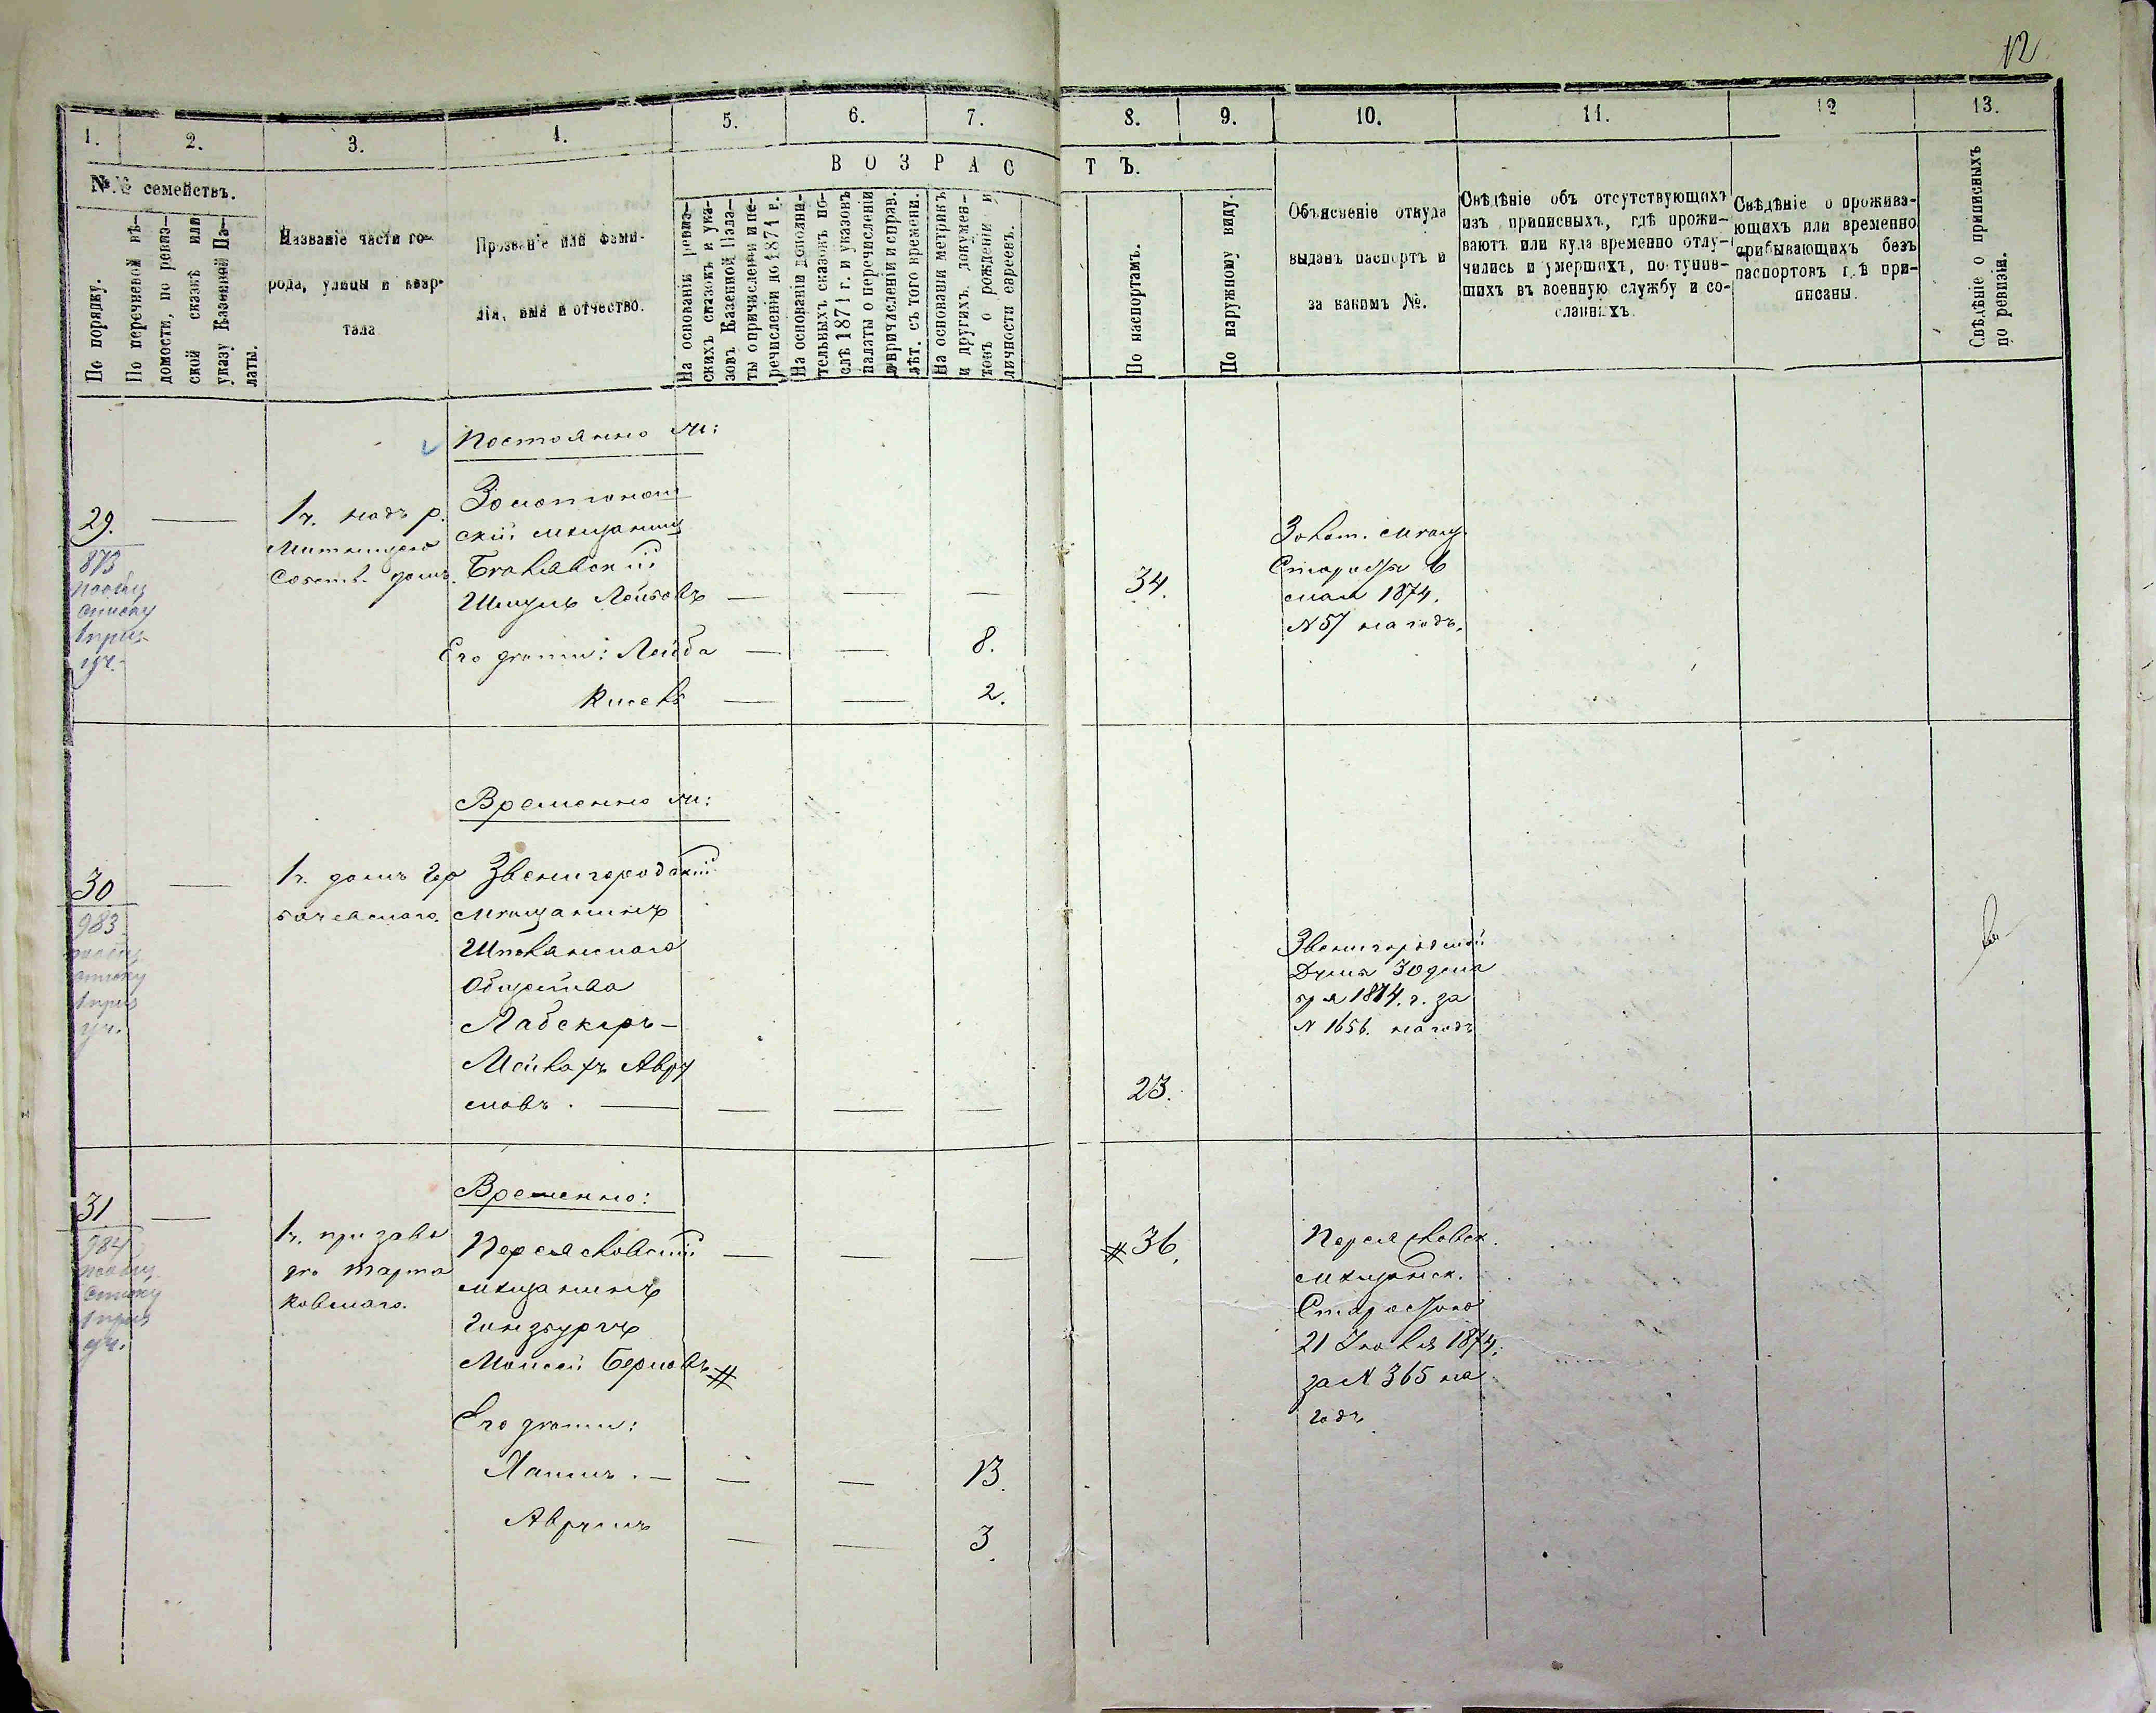 12
1.
2.
3.
4.
5.
6.
7.
8.
9.
10.
11.
12
13.
№№ семействъ.
ВОЗРАСТЪ.
По порядку.
По перечневой вѣ-
домости, по ревиз-
ской сказкѣ или
указу Казенной Па-
латы.
Названіе части го-
рода, улицы и квар-
тала
Прозваніе или фами-
лія, имя и отчество.
На основаніи ревиз-
скихъ сказокъ и ука-
зовъ Казенной Пала-
ты о причисленіи и пе-
речисленіи до 1871 г.
На основаніи дополни-
тельныхъ сказокъ по-
слѣ 1871 г. и указовъ
палаты о перечисленіи
и причисленіи и справ.
лѣт. съ того времени.
На основаніи метрикъ
и другихъ докумен-
товъ о рожденіи и
личности евреевъ.
По паспортамъ.
По наружному виду.
Объясненіе откуда
выданъ паспортъ и
за какимъ №.
Свѣдѣніе объ отсутствующихъ
изъ приписныхъ, гдѣ прожи-
ваютъ или куда временно отлу-
чились и умершихъ, поступив-
шихъ въ военную службу и со-
сланныхъ.
Свѣдѣніе о прожива-
ющихъ или временно
прибывающихъ безъ
паспортовъ гдѣ при-
писаны.
Свѣдѣніе о приписныхъ
по ревизіи.
Постоянно ж:
29.
873
по общ
списку
1 приз
уч.
1 ч. надъ р.
собств. домъ.
Золотонош
скій мѣщанинъ
Шмуль Лейбовъ — — — 34.
Его дѣти: Лейба — — 8.
— — 2.
Золот. мѣщ.
Староста 6
мая 1874.
N 57 на годъ.
Временно ж:
30
983
по общ
списку
1 приз
уч.
1 ч. домъ Гор
бачевскаго.
Звенигородскій
мѣщанинъ
Шполянскаго
Общества
Лабскеръ-
Мейлахъ Авру
мовъ. — — — — 23.
Звенигородской
Думы 30 дека
бря 1874. г. за
N 1656. на годъ
Временно:
31
984
по общ
списку
1 приз
уч.
1 ч. при заво
дѣ Тарта
ковскаго.
Переясловскій — — — # 36.
мѣщанинъ
Гинзбургъ
Моисей Берковъ #
Его дѣти:
Хаимъ. — — — 13.
Аврумъ — — 3.
Переясловск.
мѣщанск.
Старостою
21 Іюля 1874.
за N 365 на
годъ